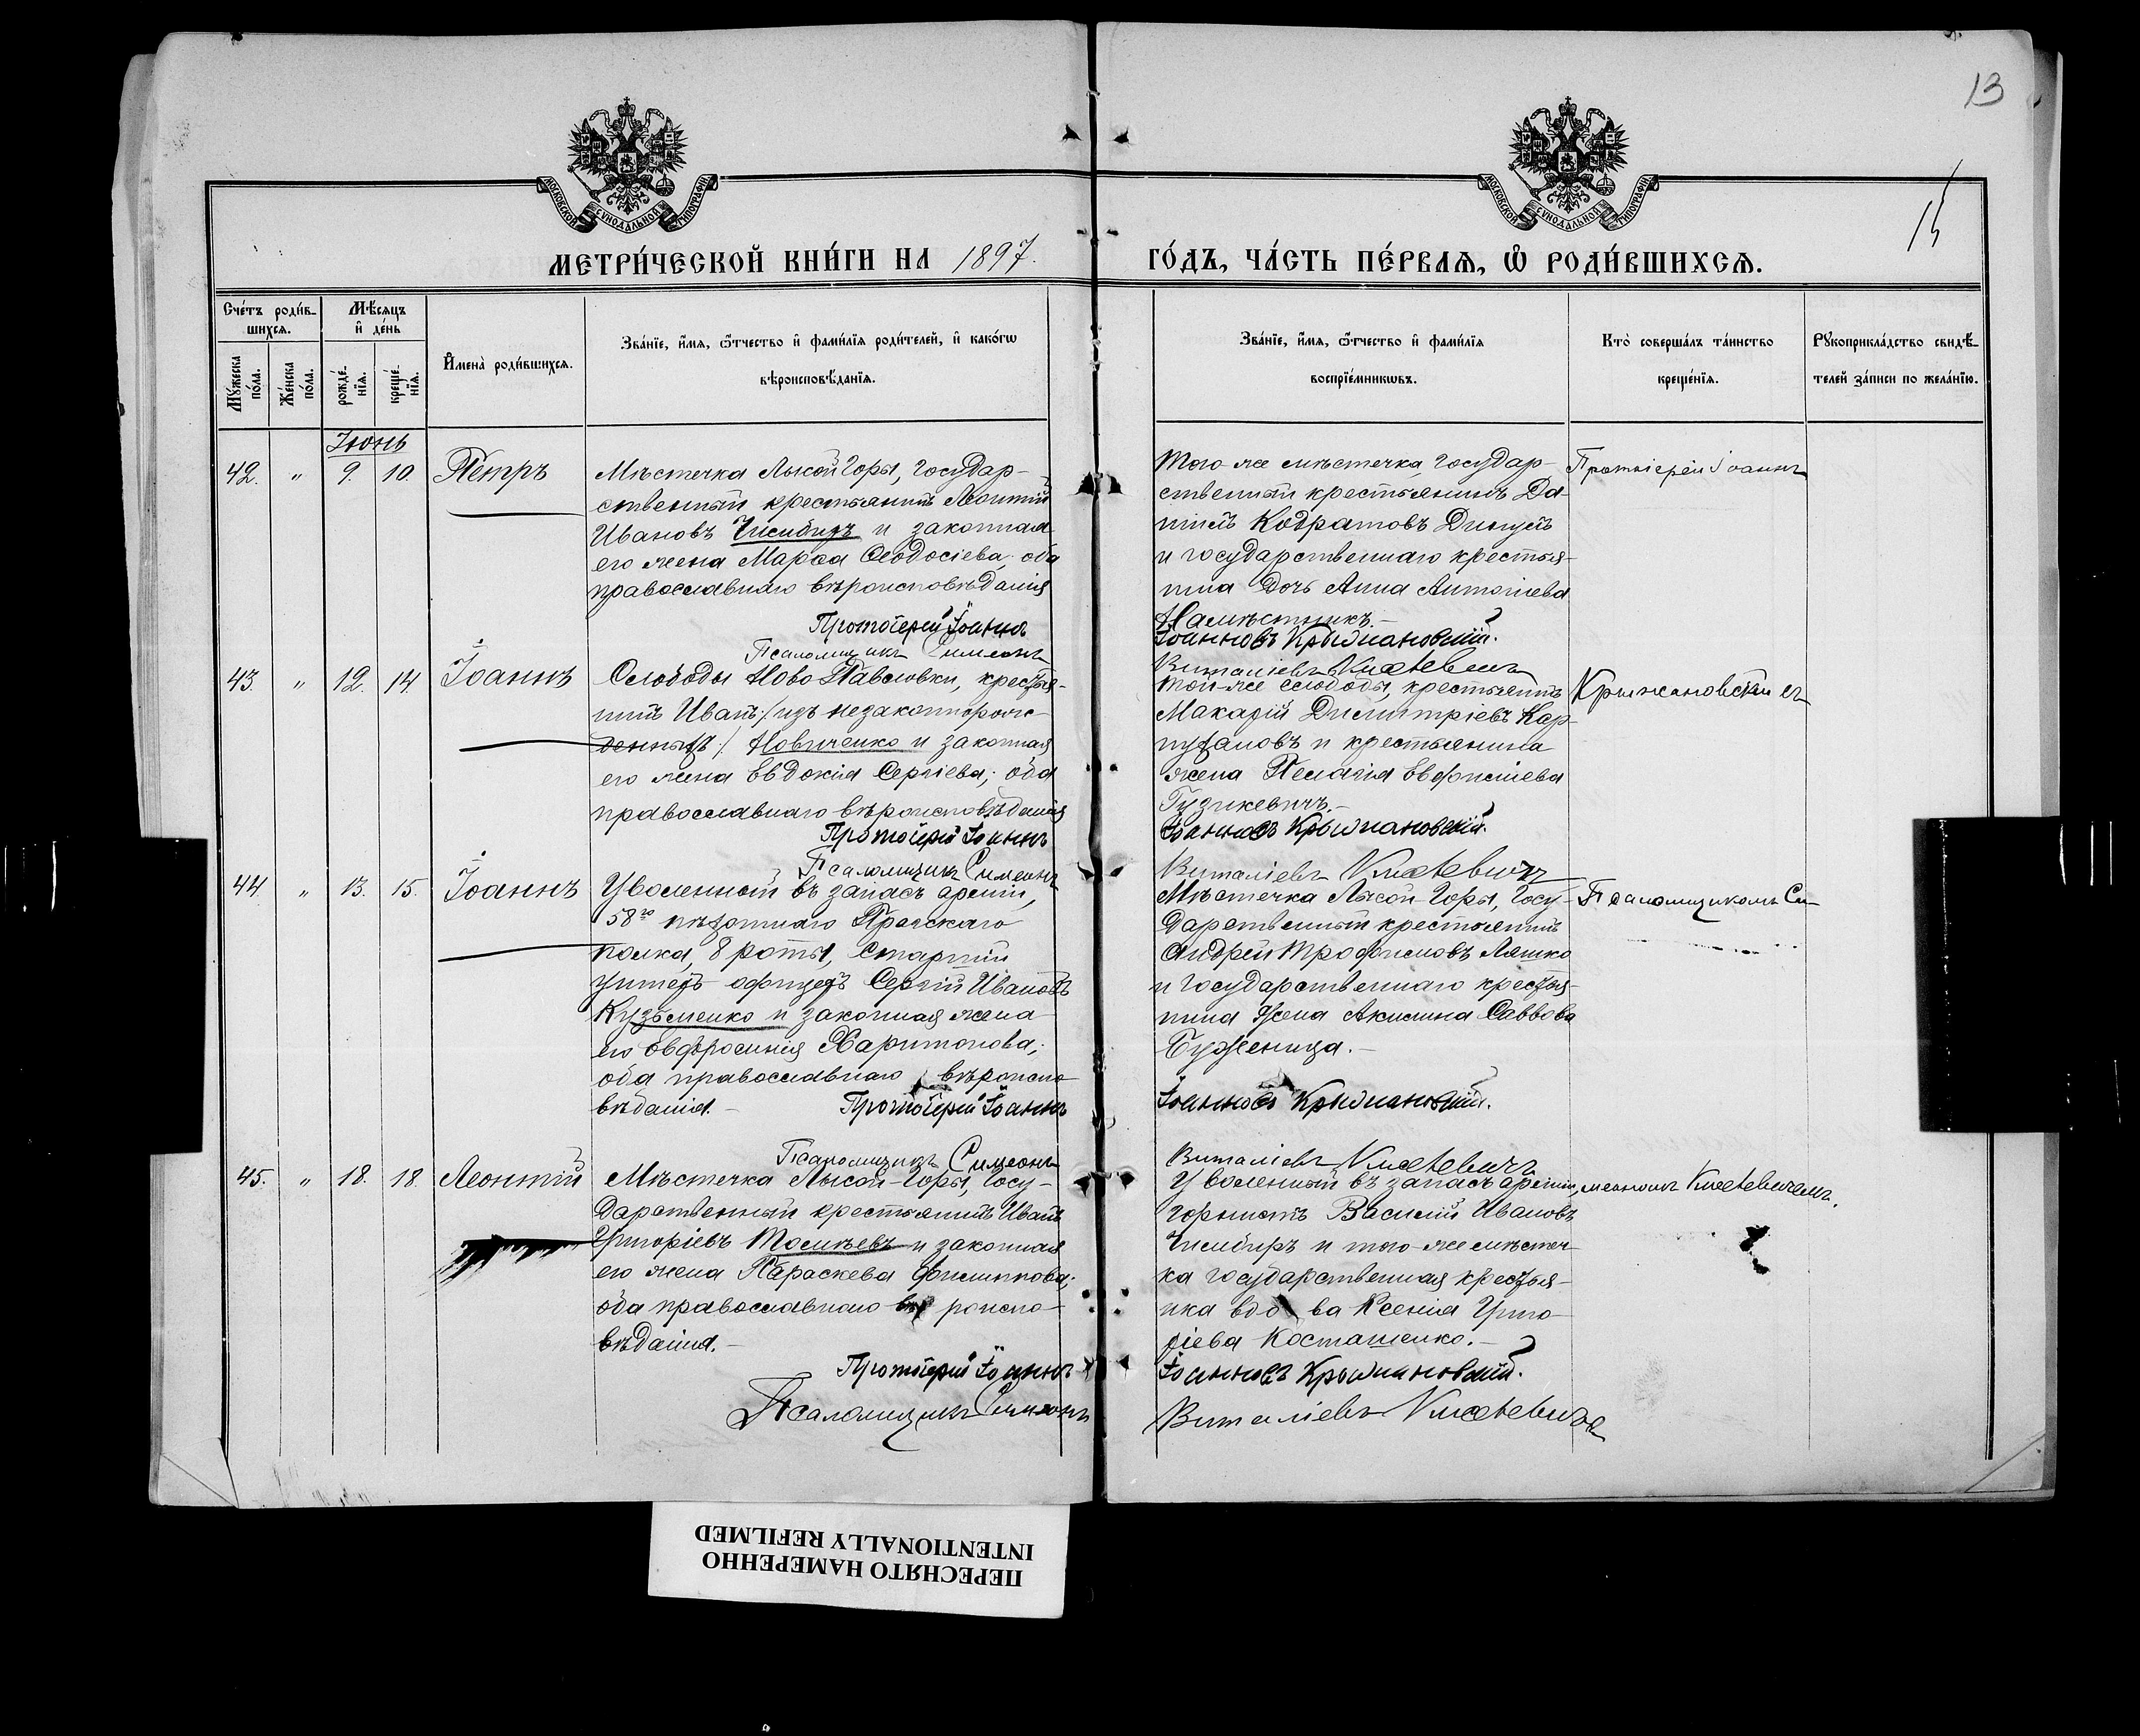 13
15
МОСКОВСКОЙ СѴНОДАЛЬНОЙ ТИПОГРАФІИ
МОСКОВСКОЙ СѴНОДАЛЬНОЙ ТИПОГРАФІИ
МЕТРИ́ЧЕСКОЙ КНИ́ГИ НА 1897.
ГО́ДЪ, ЧА́СТЬ ПЕ́РВАѦ, Ѡ РОДИ́ВШИХСѦ.
Сче́тъ роди́в-
шихсѧ.
Мꙋ́жеска по́ла.
Же́нска по́ла.
Мѣ́сѧцъ
и де́нь
рожде́-
нїѧ.
креще́-
нїѧ.
Имена̀ роди́вшихсѧ.
Зва́нїе, и́мѧ, ѻ́тчество и фами́лїѧ роди́телей, и како́гѡ
вѣроисповѣ́данїѧ.
Зва́нїе, и́мѧ, ѻ́тчество и фами́лїѧ
воспрїе́мникѡвъ.
Кто̀ соверша́лъ та́инство
креще́нїѧ.
Рꙋкоприкла́дство свидѣ́-
телей за́писи по жела́нїю.
Іюнь
42. " 9. 10. Петръ
Мѣстечка Лысой Горы, государ-
ственный крестьянинъ Леонтій
Ивановъ Чисибиръ и законная
его жена Марѳа Ѳеодосіева, оба
православнаго вѣроисповѣданія
Протоіерей Іоаннъ
Псаломщикъ Симеонъ
Того-же мѣстечка, государ-
ственный крестьянинъ Да-
ніилъ Кодратовъ
и государственнаго крестья-
нина дочь Анна Антоніева
Намѣстникъ.-
Іоанновъ Крыжановскій.
Виталіевъ Княжевичъ
Протоіерей Іоаннъ
43. " 12. 14. Іоаннъ
Слободы Ново Павловки, крестья-
нинъ Иванъ /изъ незаконнорож-
денныхъ/ Новиченко и законная
его жена Евдокія Сергіева; оба
православнаго вѣроисповѣданія
Протоіерей Іоаннъ
Псаломщикъ Симеонъ
Той-же слободы, крестьянинъ
Макарій Димитріевъ Кар-
пухановъ и крестьянина
жена Пелагія Евфиміева
Гузикевичъ.-
Іоанновъ Крыжановскій.
Виталіевъ Княжевичъ
Крыжановскій съ
44. " 13. 15. Іоаннъ
Уволенный въ запасъ арміи,
58го пѣхотнаго Прагскаго
полка, 8 роты, старшій
унтеръ-офицеръ Сергій Ивановъ
Кузьменко и законная жена
его Евфросинія Харитонова;
оба православнаго вѣроиспо-
вѣданія.- Протоіерей Іоаннъ
Псаломщикъ Симеонъ
Мѣстечка Лысой-Горы, госу-
дарственный крестьянинъ
Андрей Трофимовъ Ляшко
и государственнаго крестья-
нина жена Акилина Саввова
Буженица.-
Іоанновъ Крыжановскій.
Виталіевъ Княжевичъ
Псаломщикомъ Си-
45. " 18. 18. Леонтій
Мѣстечка Лысой-Горы, госу-
дарственный крестьянинъ Иванъ
Григоріевъ и законная
его жена Параскева Филиппова;
оба православнаго вѣроиспо-
вѣданія.-
Протоіерей Іоаннъ
Псаломщикъ Симеонъ
Уволенный въ запасъ арміи,
горнистъ Василій Ивановъ
Чисибиръ и того-же мѣстеч-
ка государственная крестья-
нка вдова Ксенія Григо-
ріева Косташенко.-
Іоанновъ Крыжановскій.
Виталіевъ Княжевичъ
меономъ Княжевичемъ.
ПЕРЕСНЯТО НАМЕРЕННО
INTENTIONALLY REFILMED